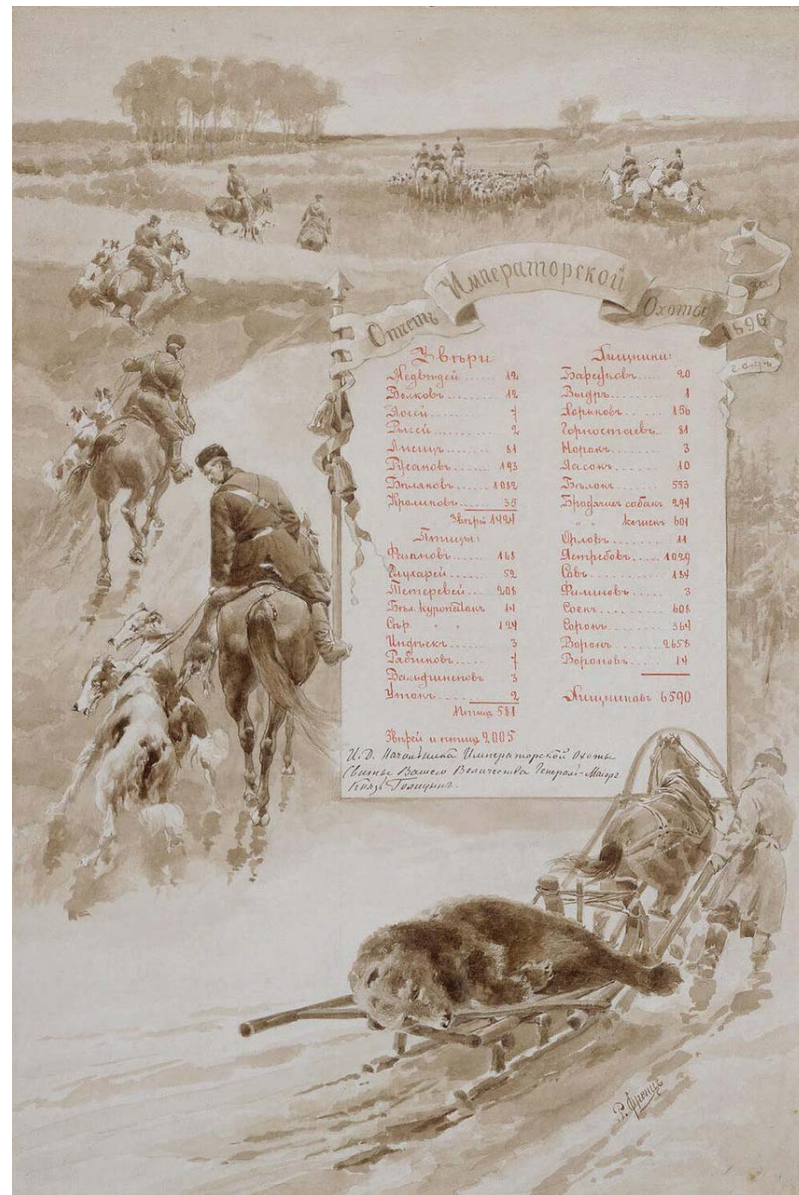 Отчетъ Императорской Охоты за 1896 годъ
Звѣри:
Медвѣдей 12
Волковъ 12
Лосей 7
Рысей 2
Лисицъ 81
Русаковъ 193
Бѣляковъ 1082
Кроликовъ 35
Звѣрей 1424
Птицы:
Фазановъ 168
Глухарей 52
Тетеревей 208
Бѣл. куропатокъ 14
Сѣр. " " 124
Индѣекъ 3
Рябчиковъ 7
Вальдшнеповъ 3
Утокъ 2
Птицъ 581
Звѣрей и птицъ 2005
Хищники:
Барсуковъ 20
Выдръ 1
Хорьковъ 156
Горностаевъ 81
Норокъ 3
Ласокъ 10
Бѣлокъ 553
Бродячихъ собакъ 294
" кошекъ 601
Орловъ 11
Ястребовъ 1029
Совъ 184
Филиновъ 3
Соекъ 608
Сорокъ 364
Воронъ 2658
Вороновъ 14
Хищниковъ 6590
И. Д. Начальника Императорской Охоты
Свиты Вашего Величества Генералъ-Маіоръ
Князь Голицынъ.
Р. Френцъ